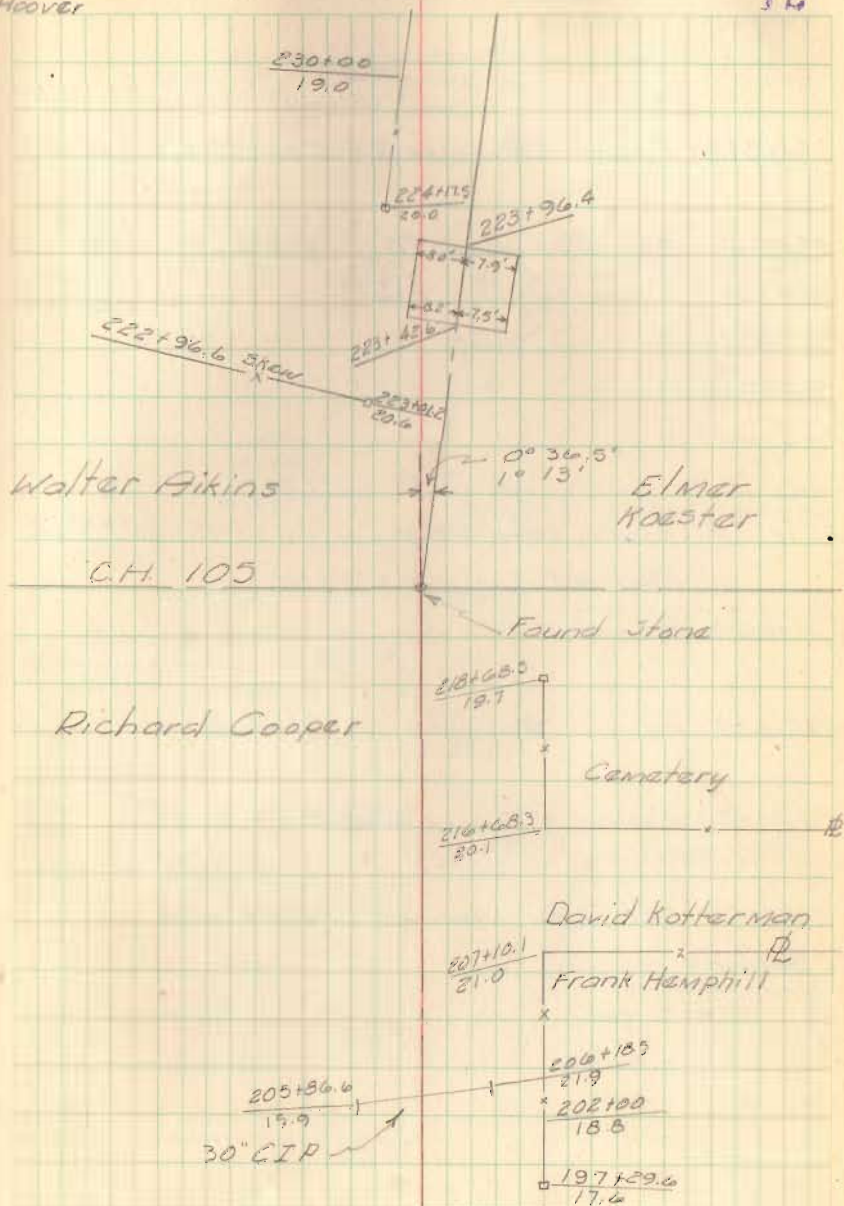 Hoover
230+00
19.0
224+17.5
20.0
223+96.4
8.0' 7.9'
8.2' 7.5'
223+43.6
222+96.6 Skew
223+01.2
20.6
0° 36.5'
1° 13'
Walter Aikins
Elmer
Koester
C.H. 105
Found Stone
218+68.5
19.7
Richard Cooper
Cemetery
216+68.3
20.1
PL
David Kotterman
207+10.1
21.0
PL
Frank Hemphill
206+18.5
21.9
205+86.6
15.9
202+00
18.8
30" CIP
197+29.6
17.6